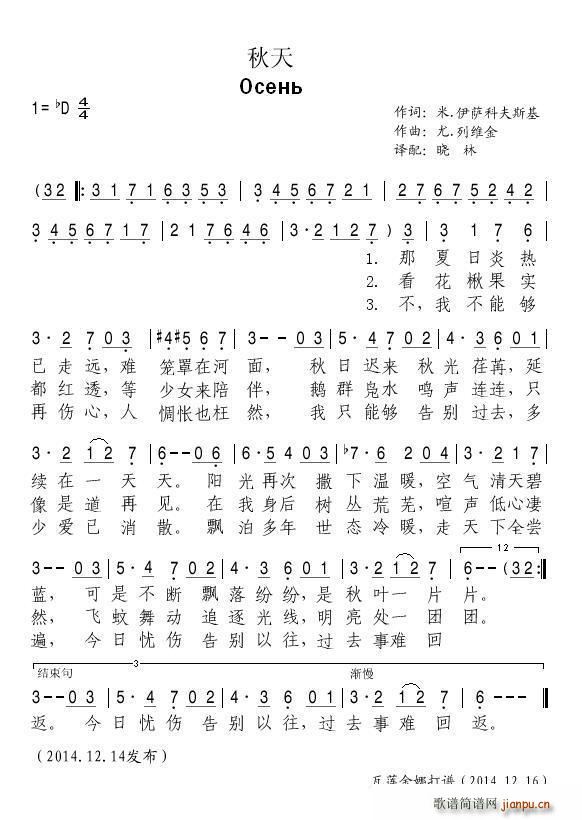 秋天
Осень
1=♭D 4/4
作词：米.伊萨科夫斯基
作曲：尤.列维金
译配：晓 林
(32 ‖: 31 71 63 53 | 34 56 72 1 | 27 67 52 42 |
34 56 71 7 | 21 76 46 | 3·2 12 7) 3 | 3 1 7 6
1. 那 夏 日炎 热
2. 看 花 楸果 实
3. 不,我 不能 够
3·2 7 03 | #4#5 6 7 | 3-- 03 | 5·4 702 | 4·3 601
已走远,难 笼罩在河 面, 秋日迟来 秋光 荏苒,延
都红透,等 少女来陪 伴, 鹅群凫水 鸣声 连连,只
再伤心,人 惆怅也枉 然, 我只能够 告别 过去,多
3·2 12 7 | 6--06 | 6·5 403 | ♭7·6 204 | 3·217
续在一天天。阳光再次 撒下温暖,空气清天碧
像是道再见。在我身后 树丛荒芜,喧声低心凄
少爱已消散。飘泊多年 世态冷暖,走天下全尝
3--03 | 5·4 702 | 4·3 601 | 3·2 12 7 | 6--(32:‖
12
蓝, 可是不断 飘落纷纷,是秋叶一片片。
然, 飞蚊舞动 追逐光线,明亮处一团团。
遍, 今日忧伤 告别以往,过去事难回
结束句 3 渐慢
3--03 | 5·4 702 | 4·3 601 | 3·2 12 7 | 6--- ‖
返。 今日忧伤 告别以往,过去事难回返。
(2014.12.14发布)
瓦莲金娜打谱(2014.12.16)
歌谱简谱网
jianpu.cn